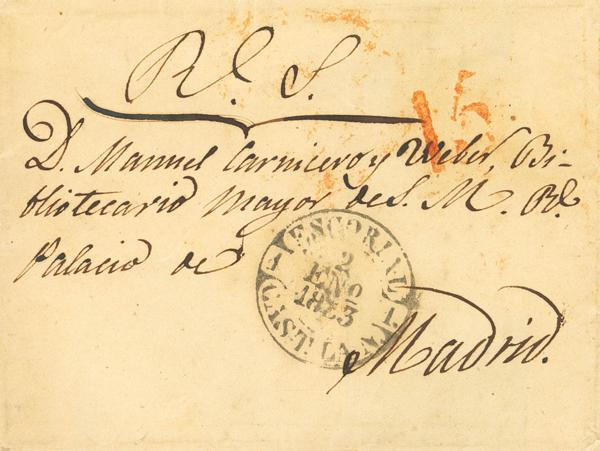 Rl. S.
D. Manuel Carnicero y Weber, Bi-
bliotecario Mayor de S. M. Rl.
Palacio de
Madrid.
ESCORIAL
2
ENO
1853
CAST. LA N.